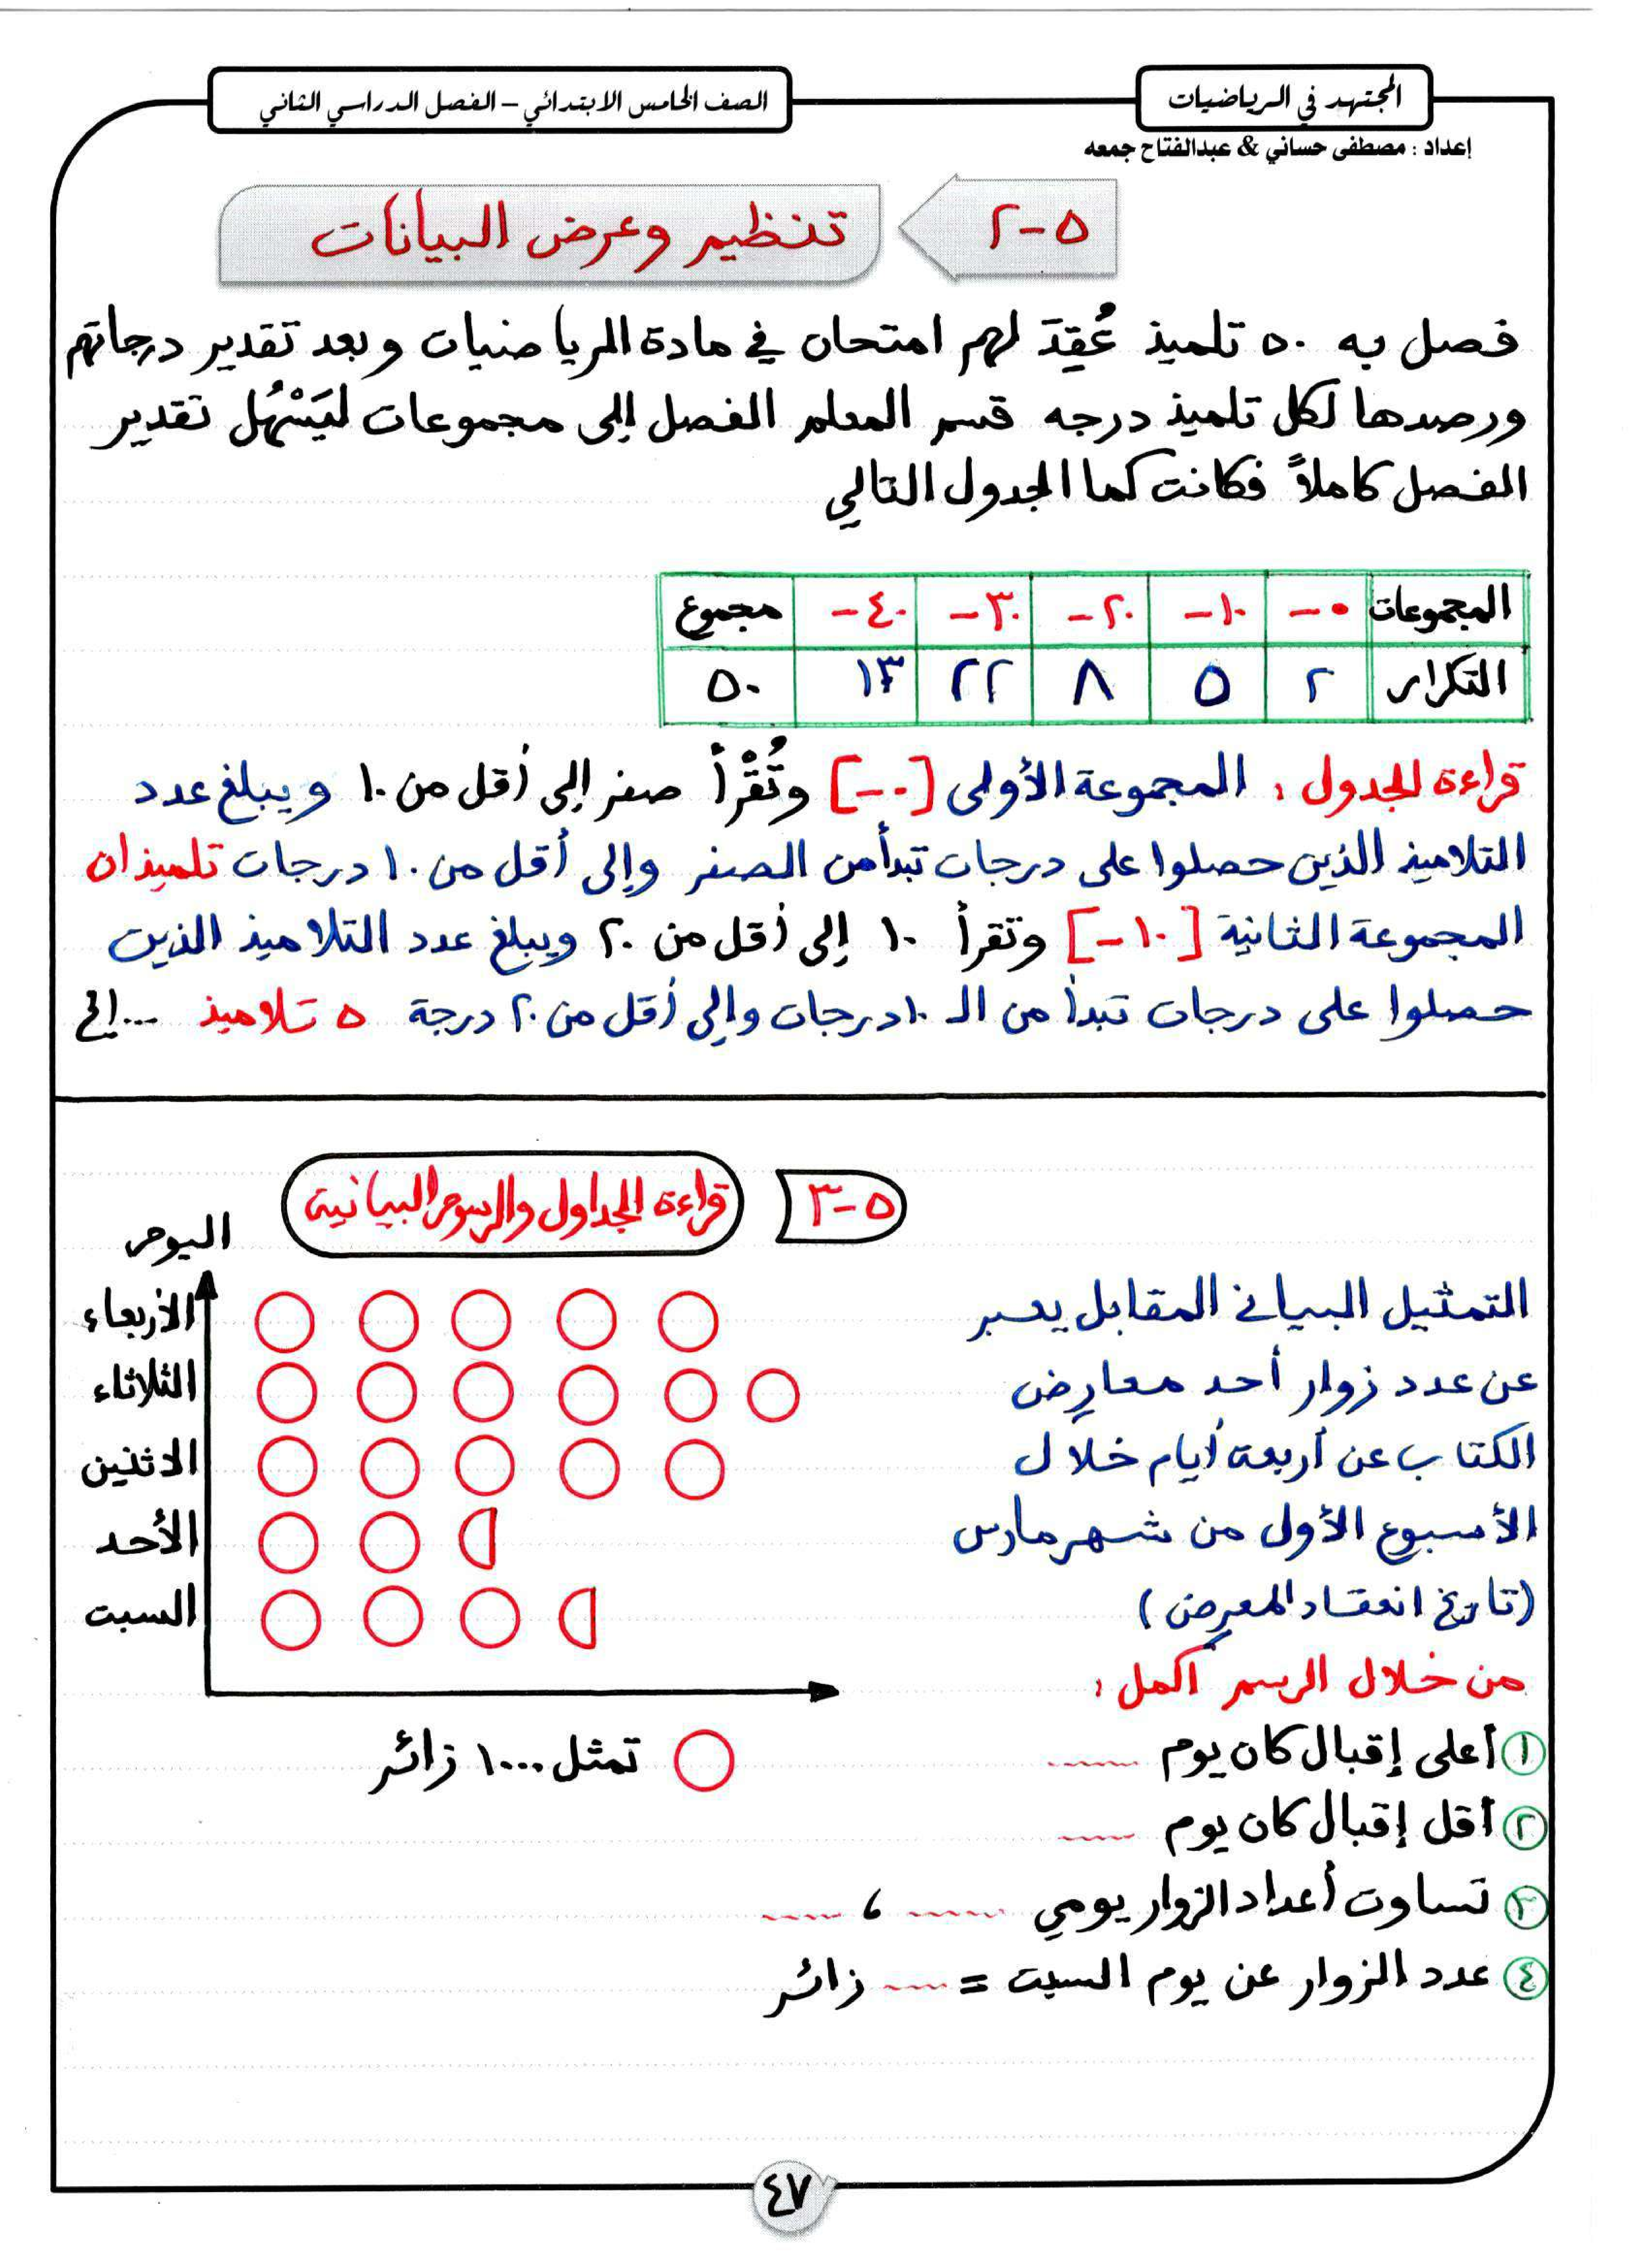 المجتهد في الرياضيات
الصف الخامس الابتدائي – الفصل الدراسي الثاني
إعداد : مصطفى حساني & عبدالفتاح جمعه
٥-٢
تنظيم وعرض البيانات
فصل به ٥٠ تلميذ عُقِدَ لهم امتحان في مادة الرياضيات وبعد تقدير درجاتهم
ورصدها لكل تلميذ درجه قسم المعلم الفصل إلى مجموعات ليَسْهُل تقدير
الفصل كاملاً فكانت كما الجدول التالي
المجموعات ٠- ١٠- ٢٠- ٣٠- ٤٠- مجموع
التكرار ٢ ٥ ٨ ٢٢ ١٣ ٥٠
قراءة الجدول : المجموعة الأولى [٠-] وتُقْرأ صفر إلى أقل من ١٠ ويبلغ عدد
التلاميذ الذين حصلوا على درجات تبدأ من الصفر وإلى أقل من ١٠ درجات تلميذان
المجموعة الثانية [١٠-] وتقرأ ١٠ إلى أقل من ٢٠ ويبلغ عدد التلاميذ الذين
حصلوا على درجات تبدأ من الـ ١٠درجات وإلى أقل من ٢٠ درجة ٥ تلاميذ ...إلخ
٥-٣
قراءة الجداول والرسوم البيانية
اليوم
الأربعاء
الثلاثاء
الاثنين
الأحد
السبت
التمثيل البياني المقابل يعبر
عن عدد زوار أحد معارض
الكتاب عن أربعة أيام خلال
الأسبوع الأول من شهر مارس
(تاريخ انعقاد المعرض)
من خلال الرسم أكمل :
تمثل ١٠٠٠ زائر
١ أعلى إقبال كان يوم ......
٢ أقل إقبال كان يوم ......
٣ تساوت أعداد الزوار يومي ...... ، ......
٤ عدد الزوار عن يوم السبت = ...... زائر
٤٧